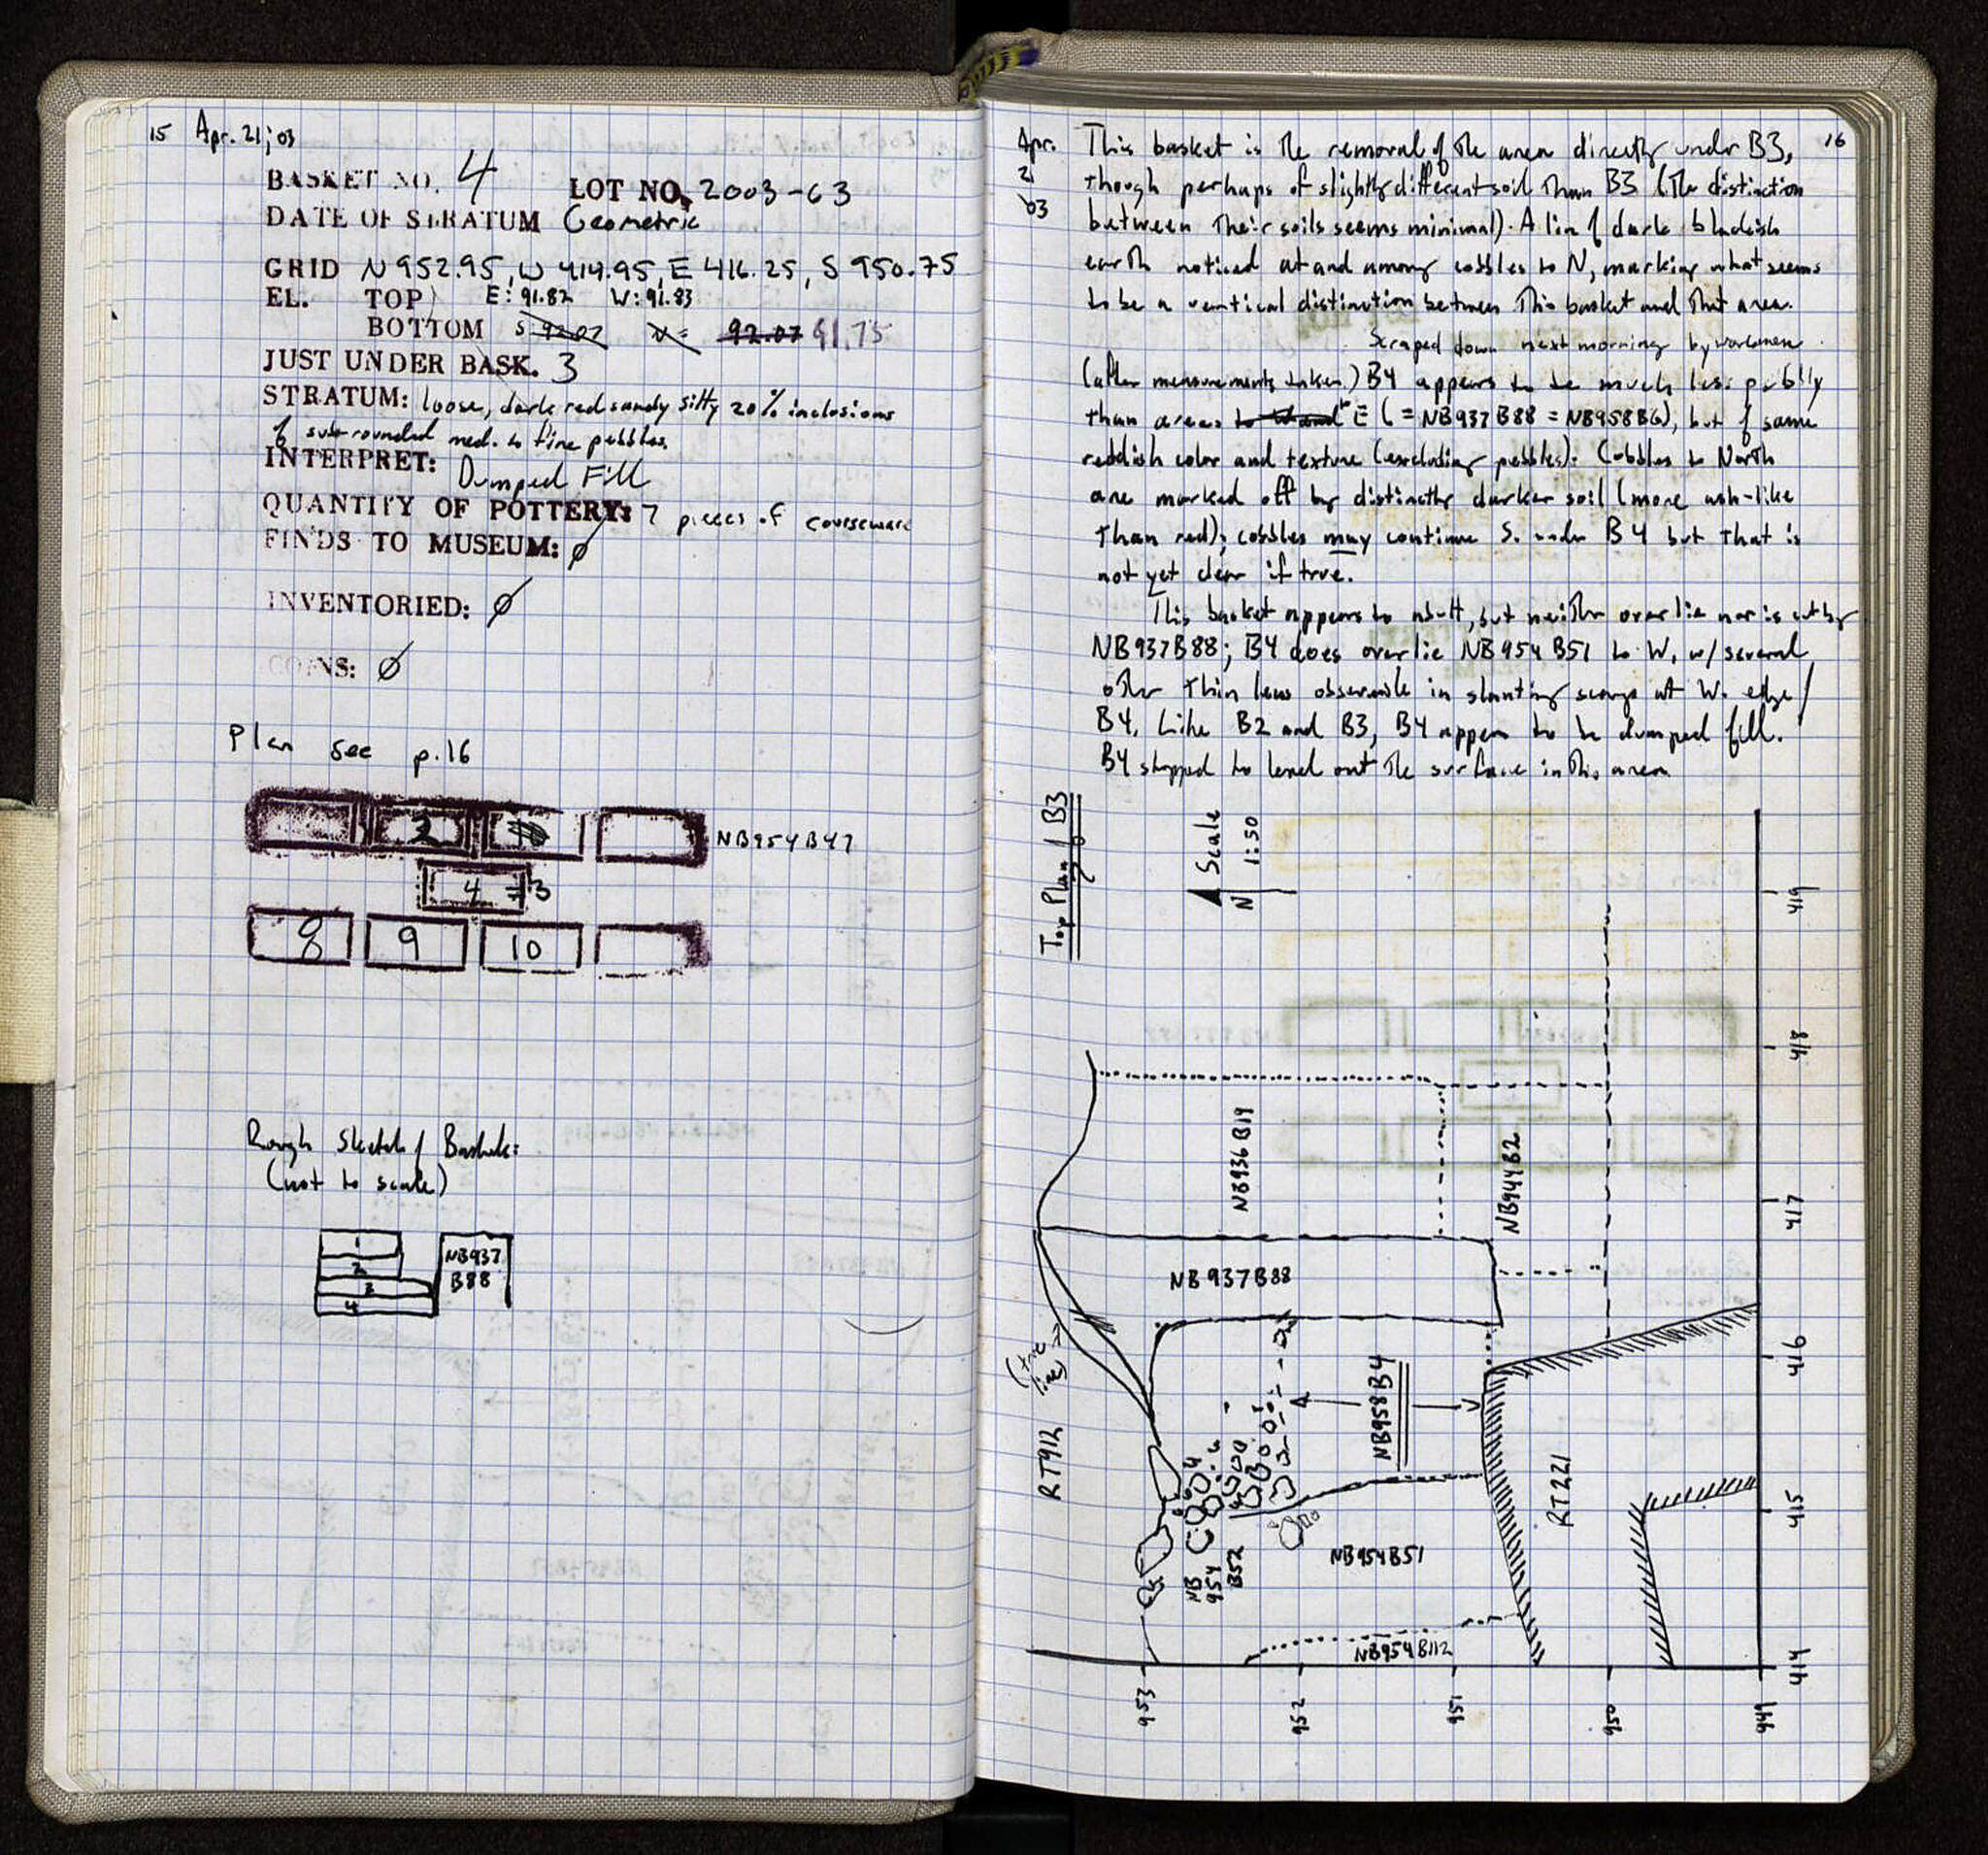 15 Apr. 21, '03
BASKET NO. 4 LOT NO. 2003-63
DATE OF STRATUM Geometric
GRID N 952.95, W 414.95, E 416.25, S 950.75
EL. TOP E: 91.82 W: 91.83
BOTTOM S: 92.07 N: 92.07 91.75
JUST UNDER BASK. 3
STRATUM: loose, dark red sandy silty 20% inclusions
of sub-rounded med. to fine pebbles.
INTERPRET: Dumped Fill
QUANTITY OF POTTERY: 7 pieces of courseware
FINDS TO MUSEUM: ∅
INVENTORIED: ∅
COINS: ∅
Plan see p.16
2
NB954B47
4 = 3
8 9 10
Rough Sketch of Baskets:
(not to scale)
1
2
3
4
NB937
B88
16
Apr.
21
'03
This basket is the removal of the area directly under B3,
though perhaps of slightly different soil than B3 (the distinction
between their soils seems minimal). A line of dark blackish
earth noticed at and among cobbles to N, marking what seems
to be a vertical distinction between this basket and that area.
Scraped down next morning by workmen
(after measurements taken.) B4 appears to be much less pebbly
than areas to W and E (= NB937B88 = NB958B6), but of same
reddish color and texture (excluding pebbles). Cobbles to North
are marked off by distinctly darker soil (more ash-like
than red); cobbles may continue S. under B4 but that is
not yet clear if true.
This basket appears to abutt, but neither overlie nor is cut by
NB937B88; B4 does overlie NB954B51 to W, w/ several
other thin lens observable in slanting scarp at W. edge of
B4. Like B2 and B3, B4 appears to be dumped fill.
B4 stopped to level out the surface in this area
Top Plan of B3
N Scale 1:50
419
418
417
416
415
414
NB936B19
NB944B2
NB937B88
(true line)
RT912
NB958B4
RT221
NB954B51
NB
954
B52
NB954B112
953
952
951
950
949